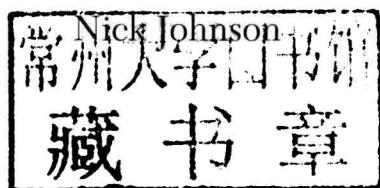 Nick Johnson
常州大学图书馆
藏书章